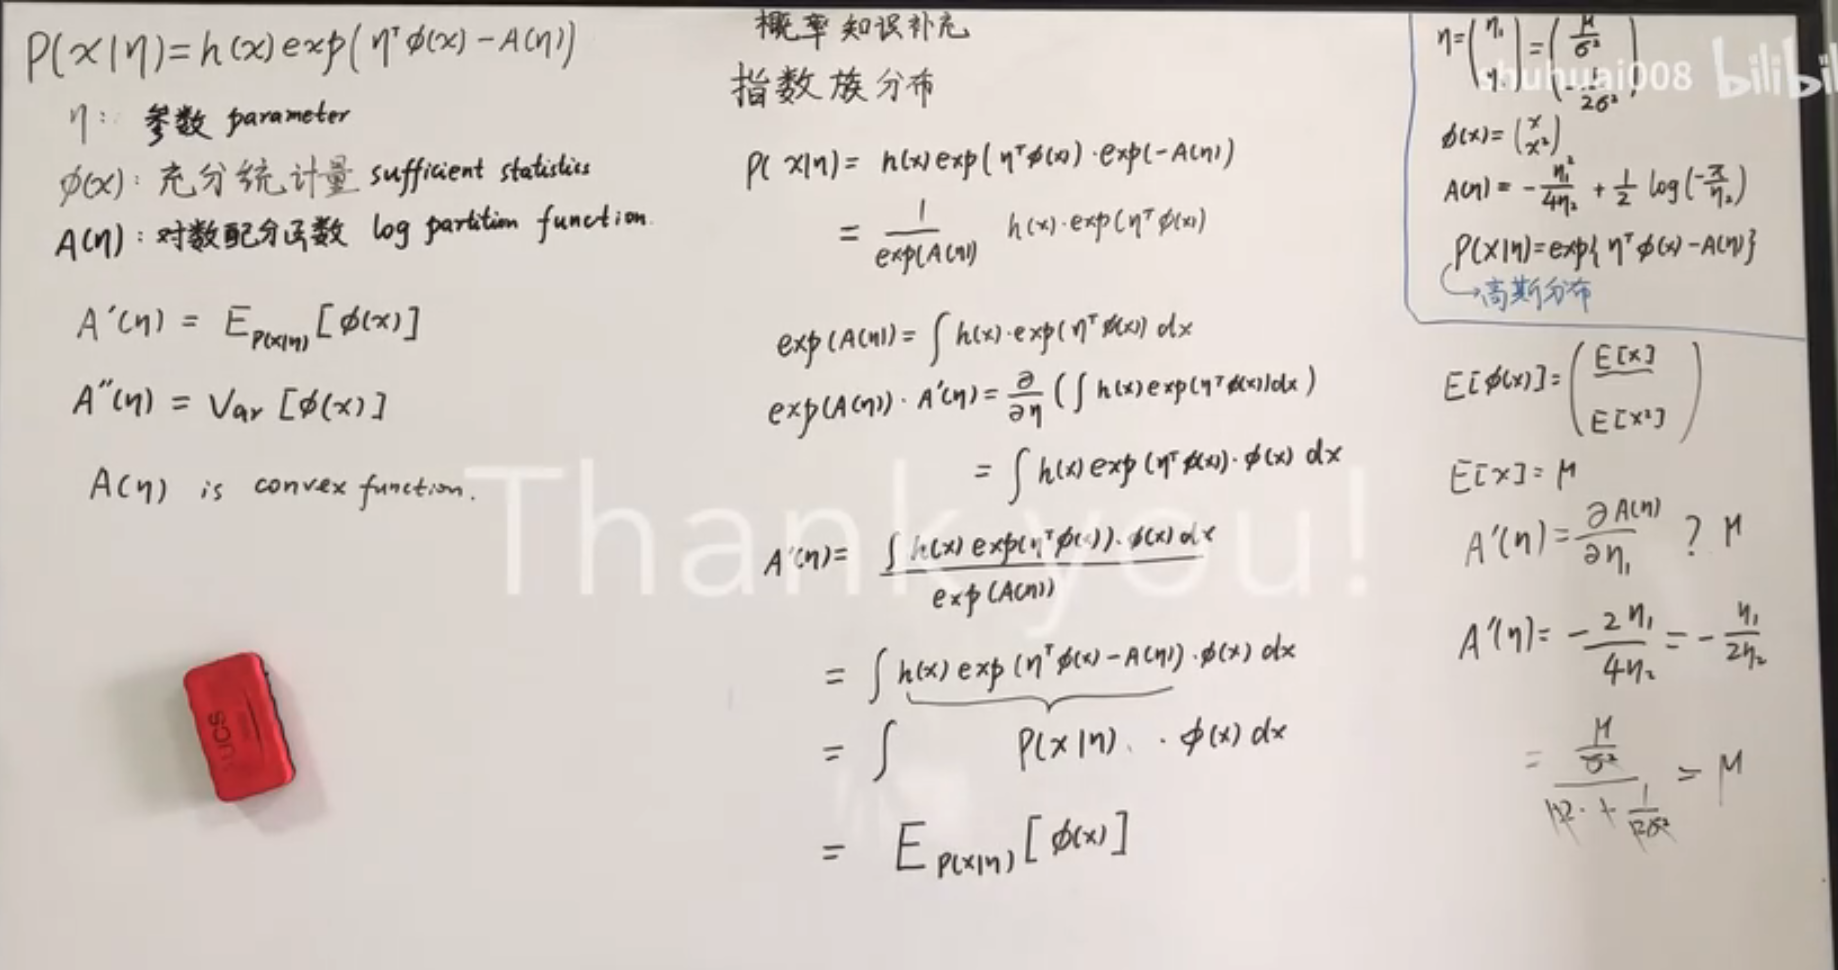 P(x|η)=h(x)exp(ηᵀφ(x)-A(η))
η: 参数 parameter
φ(x): 充分统计量 sufficient statistics
A(η): 对数配分函数 log partition function.
A′(η) = E_P(x|η) [φ(x)]
A″(η) = Var [φ(x)]
A(η) is convex function.
概率知识补充
指数族分布
P(x|η) = h(x)exp(ηᵀφ(x))·exp(-A(η))
= 1/exp(A(η)) h(x)·exp(ηᵀφ(x))
exp(A(η)) = ∫ h(x)·exp(ηᵀφ(x)) dx
exp(A(η))·A′(η) = ∂/∂η (∫ h(x)exp(ηᵀφ(x))dx)
= ∫ h(x)exp(ηᵀφ(x))·φ(x) dx
A′(η) = ∫ h(x)exp(ηᵀφ(x))·φ(x)dx / exp(A(η))
= ∫ h(x)exp(ηᵀφ(x)-A(η))·φ(x) dx
= ∫ P(x|η) · φ(x) dx
= E_P(x|η) [φ(x)]
η=(η₁ )=(μ/σ² 2σ²)
φ(x)=(x x²)
A(η) = -η₁²/4η₂ + 1/2 log(-π/η₂)
P(x|η)=exp{ηᵀφ(x)-A(η)}
→高斯分布
E[φ(x)]=(E[x] E[x²])
E[x]=μ
A′(η)=∂A(η)/∂η₁ ? μ
A′(η)= -2η₁/4η₂ = -η₁/2η₂
= μ/σ² = μ
shuhuai008 bilibil
Thank you!
TUCS